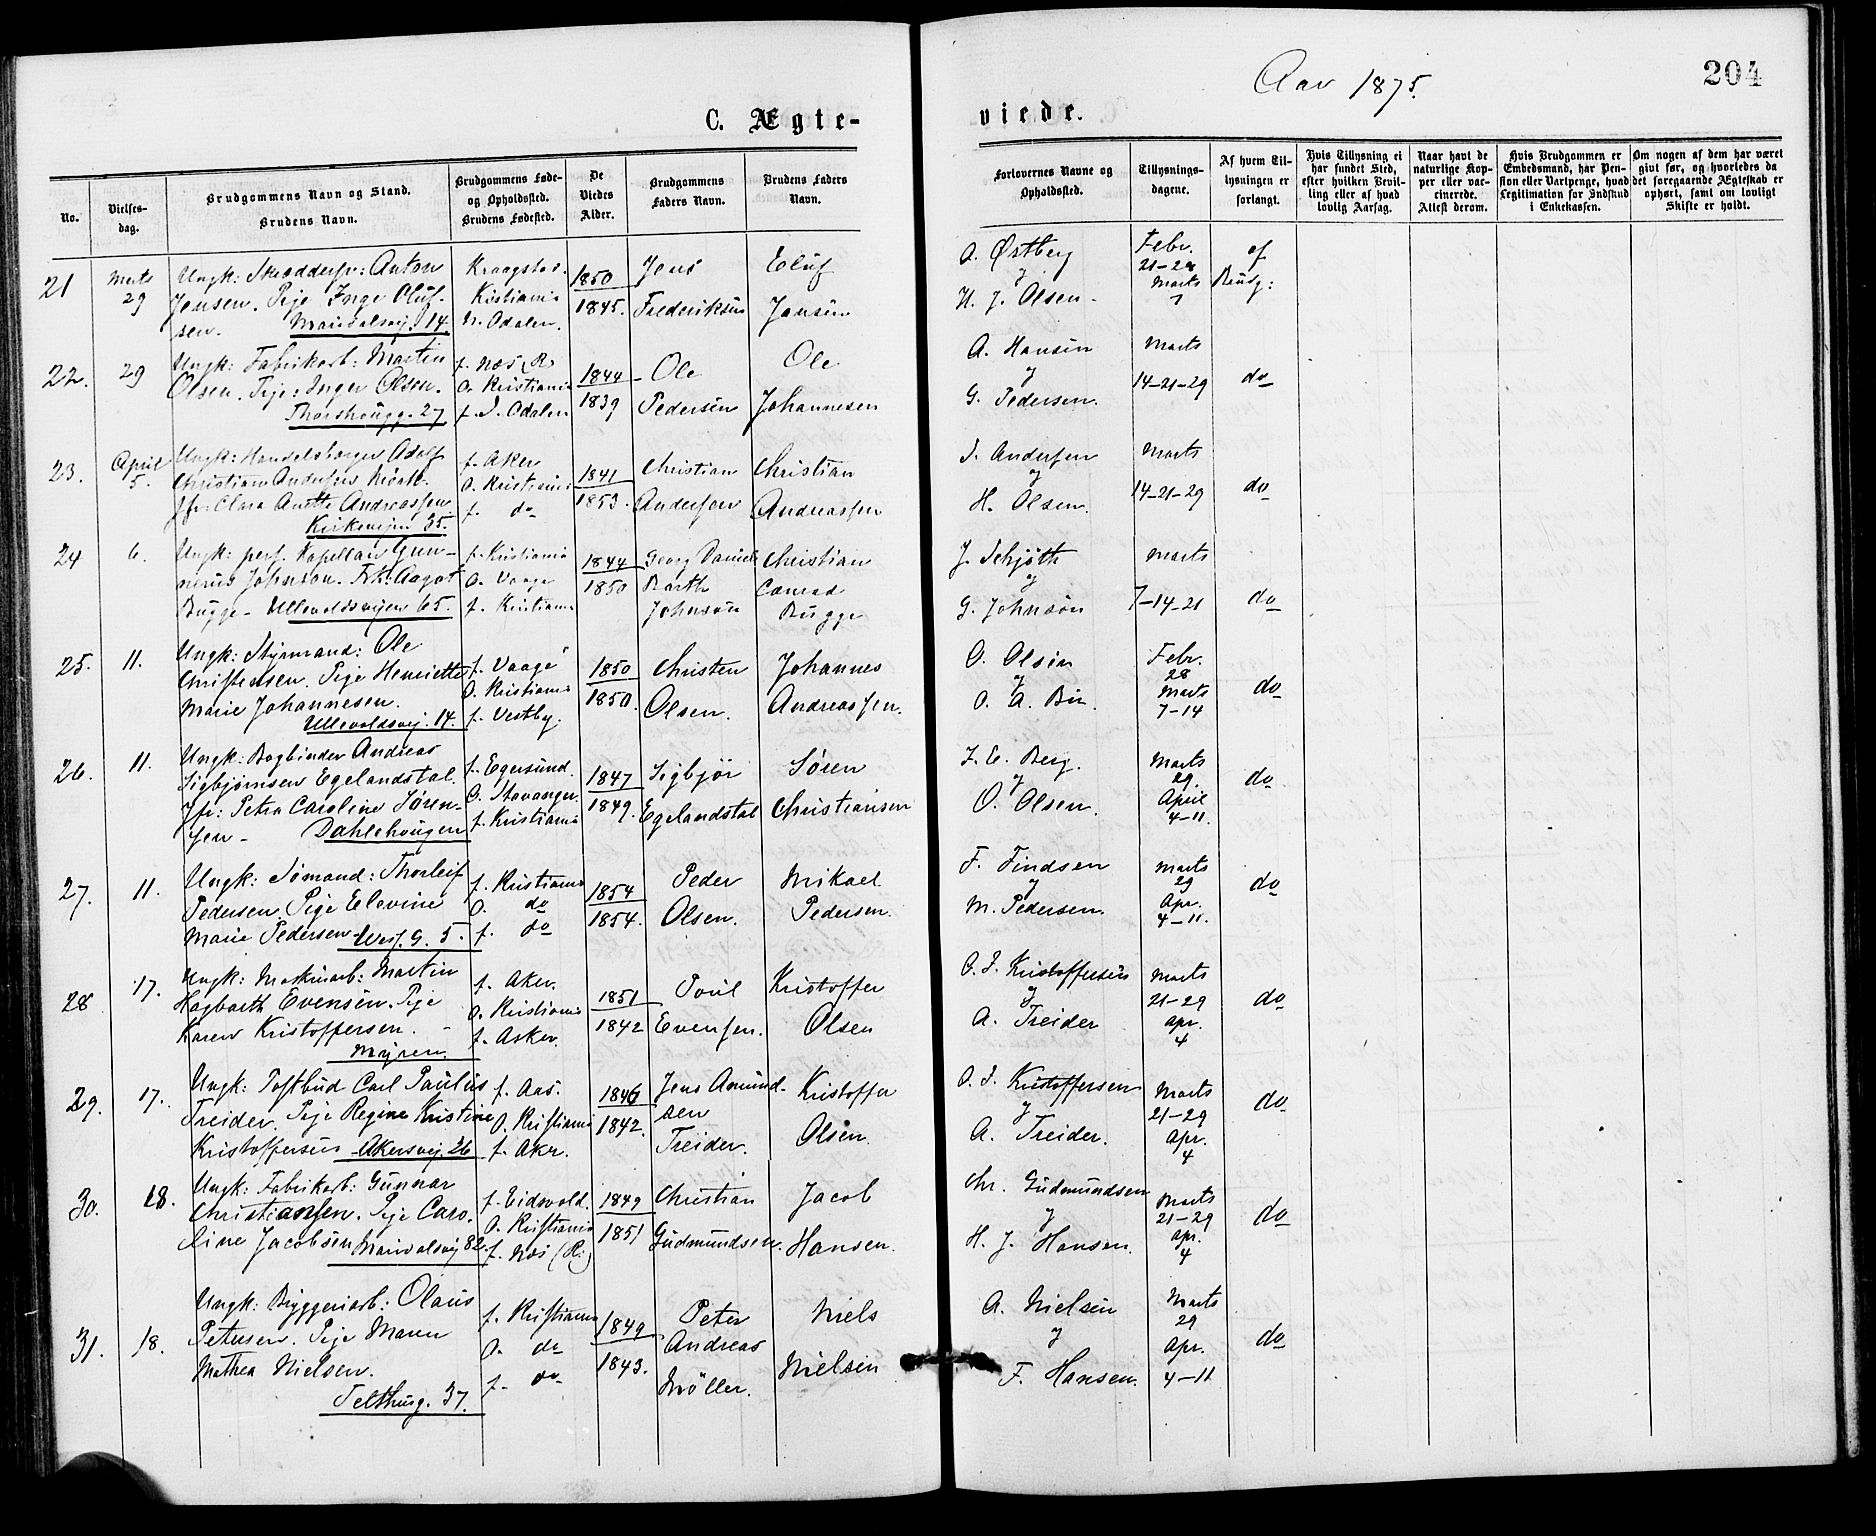 Aar 1875.
204
C. Ægte-
viede.
No.
Vielses-
dag.
Brudgommens Navn og Stand.
Brudens Navn.
Brudgommens Føde-
og Opholdssted.
Brudens Fødested.
De
Viedes
Alder.
Brudgommens
Faders Navn.
Brudens Faders
Navn.
Forlovernes Navne og
Opholdssted.
Tillysnings-
dagene.
Af hvem Til-
lysningen er
forlangt.
Hvis Tillysning ei
har fundet Sted,
efter hvilken Bevil-
ling eller af hvad
lovlig Aarsag.
Naar havt de
naturlige Kop-
per eller vac-
cinerede.
Attest derom.
Hvis Brudgommen er
Embedsmand, har Pen-
sion eller Vartpenge, hvad
Legitimation for Indskud
i Enkekassen.
Om nogen af dem har været
givt før, og hvorledes da
det foregaaende Ægteskab er
ophørt, samt om lovligt
Skifte er holdt.
21
Marts
29
Ungk: Skræddersv: Anton
Jensen. Pige Inge Oluf-
sen. Maridalsvej. 14.
Kraagstad.
Kristiania
N. Odalen.
1850
1845.
Jens
Frederiksen
Eluf
Jansen
O. Østberg
H. J. Olsen
Febr.
21-28
Marts
7
af
Brudg:
22.
29
Ungk: Fabrikarb: Martin
Olsen. Pige: Inger Olsen.
Thorshougg. 27
f. Næs (R)
O. Kristiania
f. S. Odalen
1844
1839
Ole
Pedersen
Ole
Johannesen
A. Hansen
G. Pedersen.
Marts
14-21-29
do
23.
April
5.
Ungk: Handelsborger Adolf
Christian Andersen Mørk.
Jfr: Clara Anette Andreassen
Kirkevejen 35.
f. Aker
O. Kristiania
f. do
1841
1853.
Christian
Andersen
Christian
Andreassen
J. Andersen
H. Olsen.
Marts
14-21-29
do
24
6.
Ungk: pers. Kapellan Gun-
nerius Johnson. Frk. Aagot
Bugge - Ullevoldsvejen 65.
f. Kristiania
O. Vaage
f. Kristiania
1844
1850
Georg Daniel
Barth
Johnson
Christian
Conrad
Bugge
J. Schjøth
G. Johnson
Marts
7-14-21
do
25.
11.
Ungk: Styrmand: Ole
Christensen. Pige Henriette
Marie Johannesen.
Ullevoldsvej. 14.
f. Vaage
O. Kristiania
f. Vestby.
1850
1850.
Christen
Olsen.
Johannes
Andreassen.
O. Olsen
Febr.
28
Marts
7-14
do
26.
11.
Ungk: Bogbinder Andreas
Sigbjørnsen Egelandstal.
Jfr: Petra Caroline Søren-
sen - Dahlehougen
f. Egersund.
O. Stavanger.
f. Kristiania
1847
1849.
Sigbjør
Egelandstal
Søren
Christiansen
Z. E. Berg.
O. Olsen.
Marts
29
April
4-11.
do
27.
11.
Ungk: Sømand: Thorleif
Pedersen. Pige Elevine
Marie Pedersen - Wess. G. 5.
f. Kristiania
O. do
f. do
1854
1854.
Peder
Olsen.
Mikael
Pedersen.
F. Findsen
M. Pedersen.
Marts
29
Apr.
4-11.
do
28
17.
Ungk: Maskinarb: Martin
Hagbarth Evensen. Pige
Karen Kristoffersen.
Myren.
f. Aker.
O. Kristiania
f. Asker.
1851
1842
Poul
Evensen.
Kristoffer
Olsen
O. J. Kristoffersen
A. Treider
Marts
21-29
Apr.
4
do
29.
17.
Ungk: Postbud Carl Paulus
Treider. Pige Regine Kristine
Kristoffersen - Akersvej. 26
f. Aas.
O. Kristiania
f. Aker.
1846
1842.
Jens Amund-
sen
Treider.
Kristoffer
Olsen.
O. J. Kristoffersen
A. Treider.
Marts
21-29
Apr.
4
do
30.
18.
Ungk: Fabrikarb: Gunnar
Christiansen. Pige Caro-
line Jacobsen Maridalsvej 82.
f. Eidsvold.
O. Kristiania
f. Næs (R.)
1849
1851
Christian
Gudmundsen.
Jacob
Hansen.
Chr. Gudmundsen
H. J. Hansen.
Marts
21-29
Apr.
4
do
31.
18.
Ungk: Bryggeriarb: Olaus
Petersen. Pige Maren
Mathea Nielsen.
Telthusg. 37.
f. Kristiania
O. do
f. do
1849
1843.
Peter
Andreas
Møller.
Niels
Nielsen
A. Nielsen
F. Hansen.
Marts
29
Apr.
4-11
do